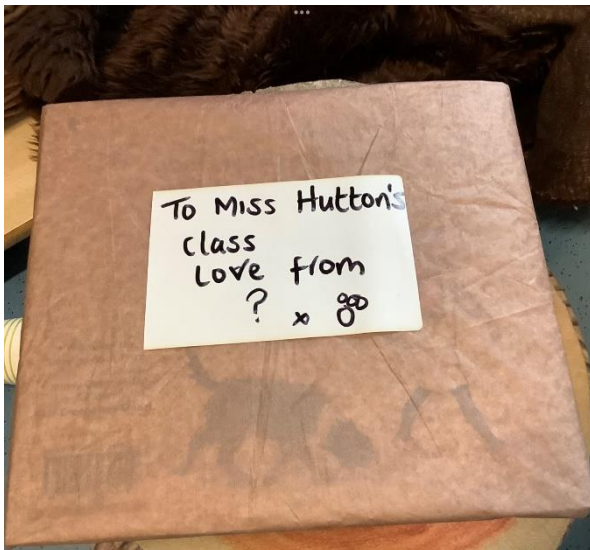 To Miss Hutton's
class
Love from
? x